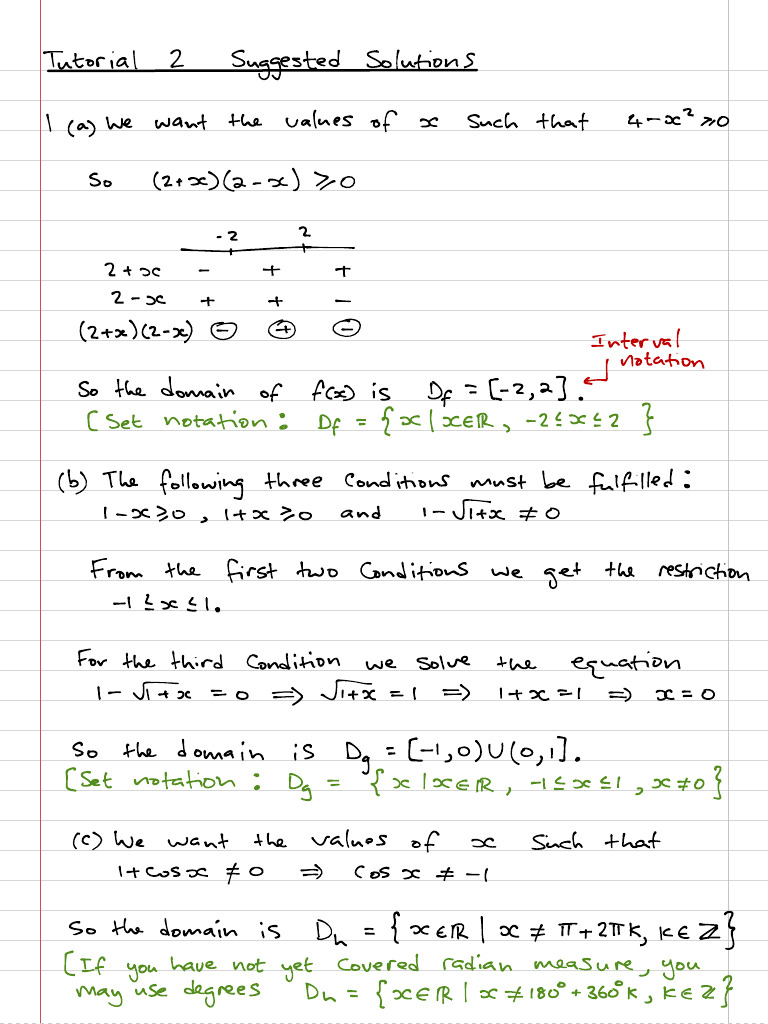 Tutorial 2 Suggested Solutions
1 (a) We want the values of x such that 4-x² ≥0
So (2+x)(2-x) ≥0
-2 2
2+x - + +
2-x + + -
(2+x)(2-x) ⊖ ⊕ ⊖
Interval
notation
So the domain of f(x) is Df = [-2,2].
[Set notation: Df = {x | x∈ℝ, -2≤x≤2 }
(b) The following three conditions must be fulfilled:
1-x≥0, 1+x≥0 and 1-√1+x ≠ 0
From the first two conditions we get the restriction
-1≤x≤1.
For the third condition we solve the equation
1-√1+x = 0 ⟹ √1+x = 1 ⟹ 1+x=1 ⟹ x=0
So the domain is Dg = [-1,0)∪(0,1].
[Set notation: Dg = {x | x∈ℝ, -1≤x≤1, x≠0}
(c) We want the values of x such that
1+cosx ≠ 0 ⟹ cos x ≠ -1
So the domain is Dh = {x∈ℝ | x ≠ π+2πk, k∈ℤ}
[If you have not yet covered radian measure, you
may use degrees Dh = {x∈ℝ | x≠180°+360°k, k∈ℤ}